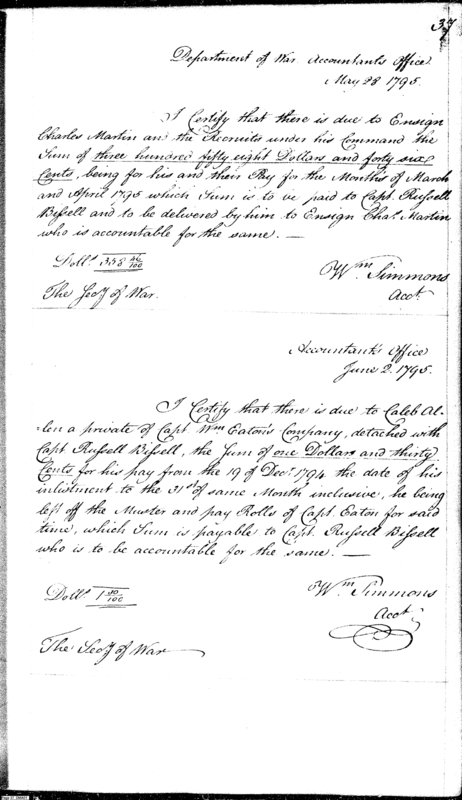 37
Department of War Accountants Office
May 28 1795.
I Certify that there is due to Ensign
Charles Martin and the Recruits under his Command the
Sum of three hundred fifty eight Dollars and forty six
Cents, being for his and their Pay for the Months of March
and April 1795 which Sum is to be paid to Capt. Russell
Bissell and to be delivered by him to Ensign Chas. Martin
who is accountable for the same. —
Dolls. 358 46/100
Wm Simmons
The Secy of War.
Acct.
Accountant's Office
June 2. 1795.
I Certify that there is due to Caleb Al-
-len a private of Capt Wm Eaton's Company, detached with
Capt Russell Bissell, the Sum of one Dollars and thirty
Cents for his pay from the 19 of Decr. 1794 the date of his
inlistment to the 31st of same Month inclusive, he being
left off the Muster and pay Rolls of Capt. Eaton for said
time, which Sum is payable to Capt. Russell Bissell
who is to be accountable for the same. —
Dolls. 1 30/100
Wm Simmons
Acct.
The Secy of War